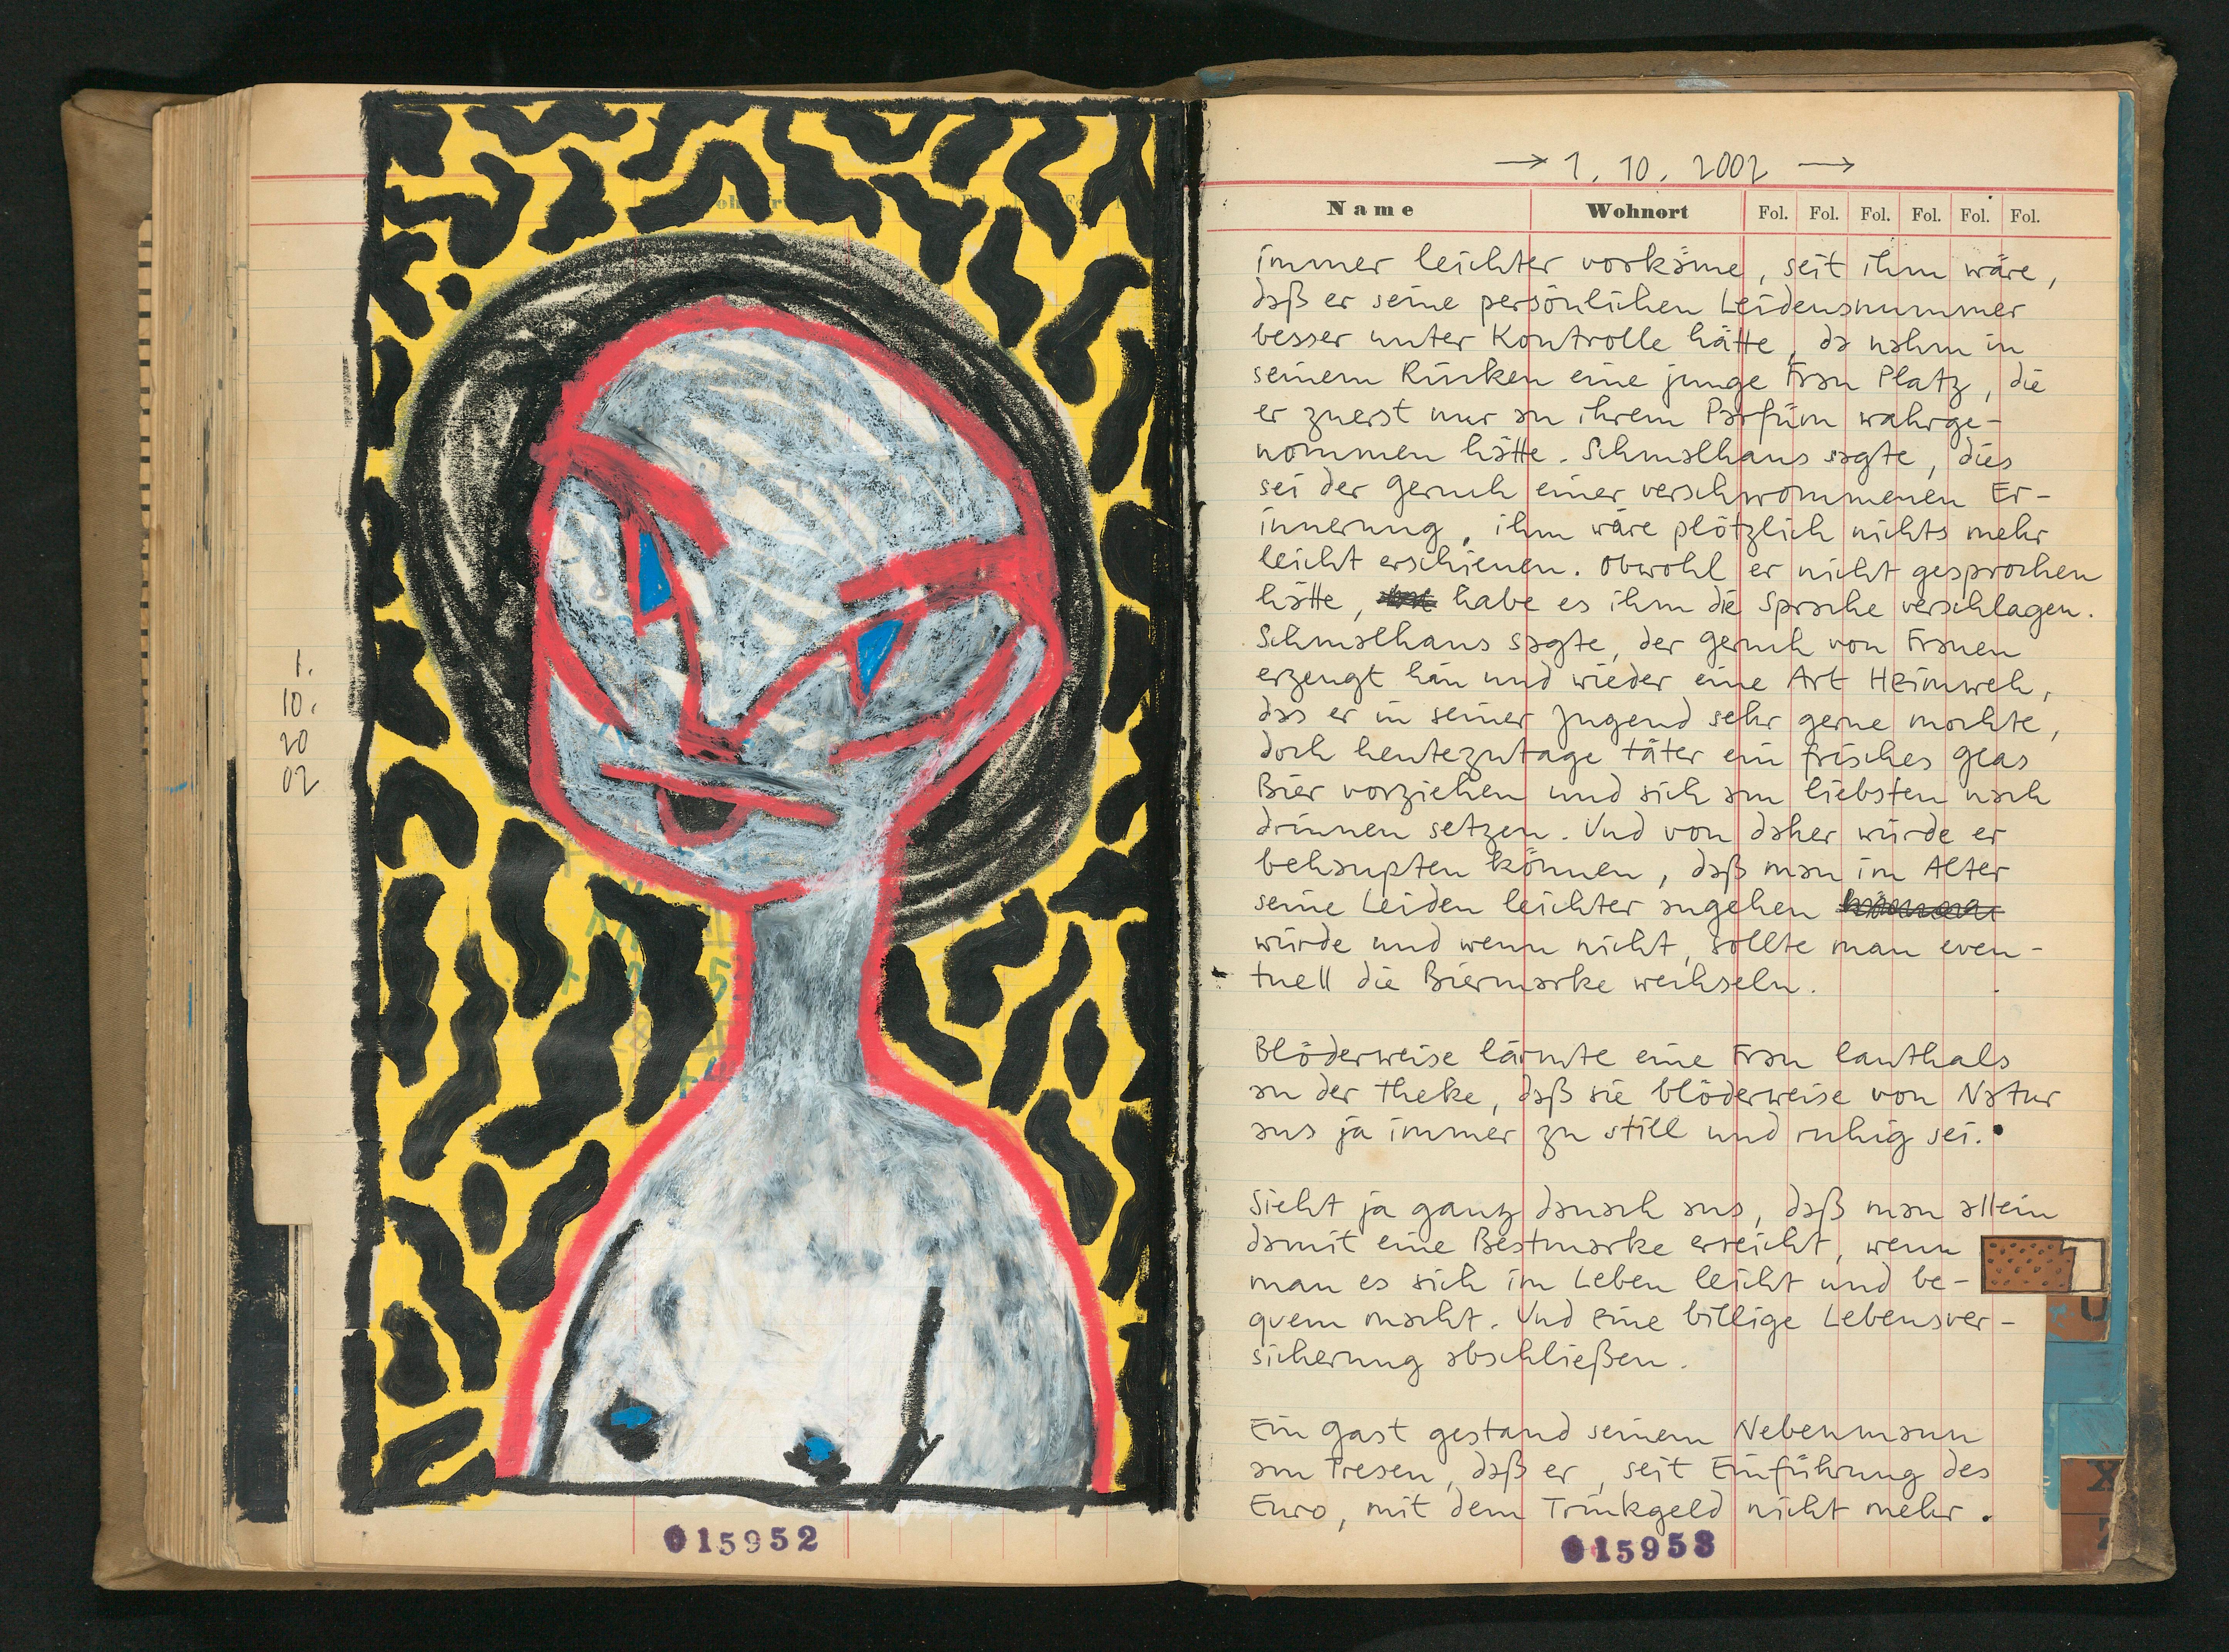 1.
10.
20
02
015952
→ 1. 10. 2002 →
Name Wohnort Fol. Fol. Fol. Fol. Fol. Fol.
immer leichter vorkäme, seit ihm wäre,
daß er seine persönlichen Leidensnummer
besser unter Kontrolle hätte, da nahm in
seinem Rücken eine junge Frau Platz, die
er zuerst nur an ihrem Parfüm wahrge-
nommen hätte. Schmalhans sagte, dies
sei der Geruch einer verschwommenen Er-
innerung, ihm wäre plötzlich nichts mehr
leicht erschienen. Obwohl er nicht gesprochen
hätte, habe es ihm die Sprache verschlagen.
Schmalhans sagte, der Geruch von Frauen
erzeugt hin und wieder eine Art Heimweh,
das er in seiner Jugend sehr gerne mochte,
doch heutezutage täter ein frisches Glas
Bier vorziehen und sich am liebsten nach
drinnen setzen. Und von daher würde er
behaupten können, daß man im Alter
seine Leiden leichter angehen
würde und wenn nicht, sollte man even-
tuell die Biermarke wechseln.
Blöderweise lärmte eine Frau lauthals
an der Theke, daß sie blöderweise von Natur
aus ja immer zu still und ruhig sei.
Sieht ja ganz danach aus, daß man allein
damit eine Bestmarke erreicht, wenn
man es sich im Leben leicht und be-
quem macht. Und eine billige Lebensver-
sicherung abschließen.
Ein Gast gestand seinem Nebenmann
am Tresen, daß er, seit Einführung des
Euro, mit dem Trinkgeld nicht mehr.
015953
U
X
Z